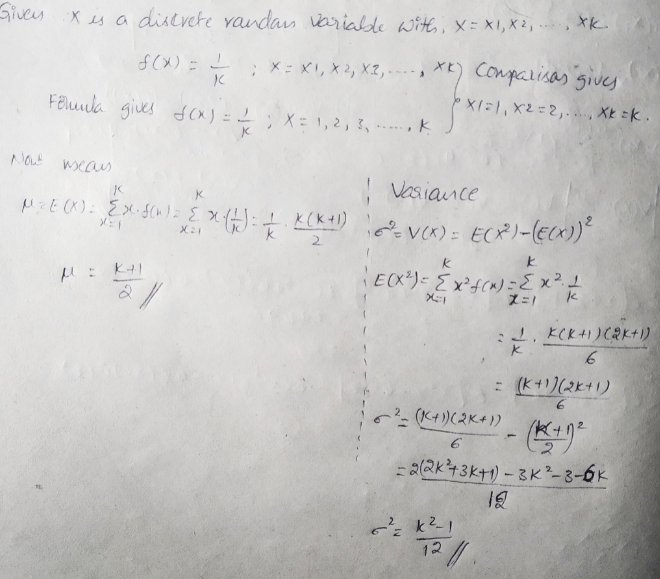 Given X is a discrete randan variable with, X = x1, x2, ....., xk
f(x) = 1/K ; X = x1, x2, x3, ....., xk } Comparison gives
Formula gives f(x) = 1/K ; X = 1, 2, 3, ....., k } x1=1, x2=2, ..., xk=k.
Now mean
μ = E(X) = Σ_{x=1}^{K} x·f(x) = Σ_{x=1}^{K} x·(1/K) = 1/K · K(K+1)/2
μ = K+1/2 //
Variance
σ² = V(X) = E(X²) - (E(X))²
E(X²) = Σ_{x=1}^{K} x² f(x) = Σ_{x=1}^{K} x² · 1/K
= 1/K · K(K+1)(2K+1)/6
= (K+1)(2K+1)/6
σ² = (K+1)(2K+1)/6 - (K+1/2)²
= 2(2K²+3K+1) - 3K² - 3 - 6K/12
σ² = K²-1/12 //